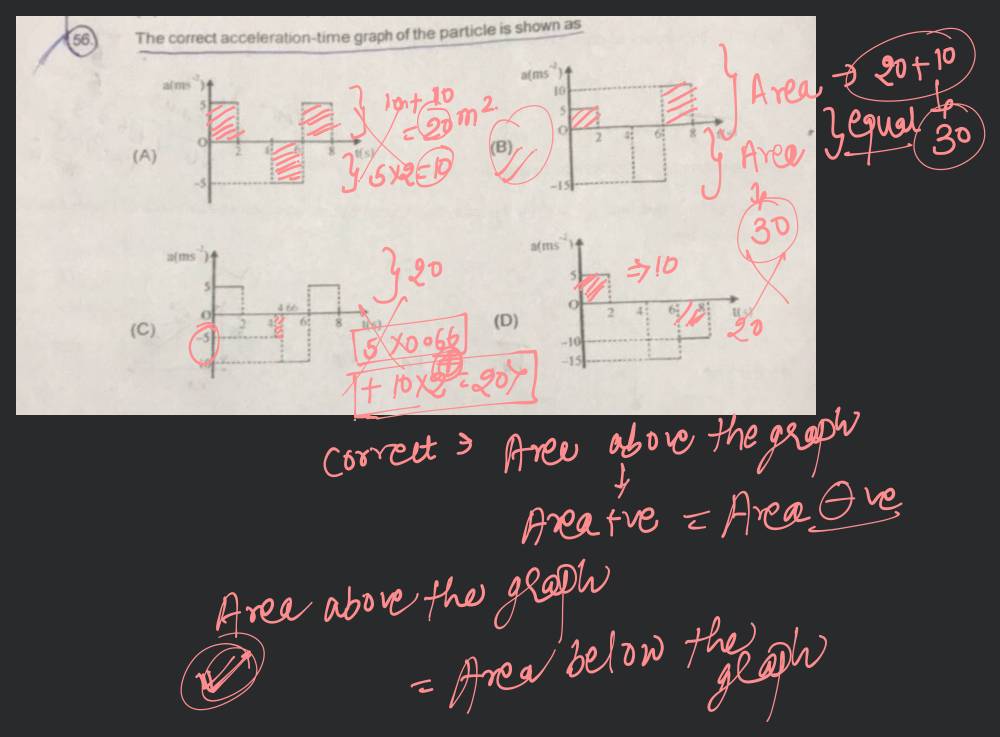 56. The correct acceleration-time graph of the particle is shown as
(A)
a(ms⁻²)
5
O
-5
2 4 6 8 t(s)
10+10
= 20 m².
5×2=10
(B)
a(ms⁻²)
10
5
O
-15
2 4 6 8 t(s)
Area → 20+10
↓
30
Area
↓
30
equal
(C)
a(ms⁻²)
5
O
-5
-10
2 4 4 66 6 8 t(s)
20
5 × 0.66
+ 10×2 = 20
(D)
a(ms⁻²)
5
O
-10
-15
2 4 6 8 t(s)
⇒ 10
20
Correct ⇒ Area above the graph
↓
Area +ve = Area ⊖ve
Area above the graph
= Area below the
graph